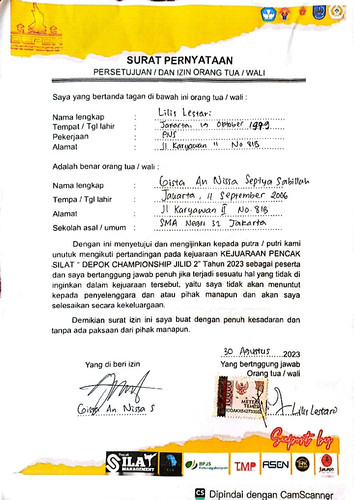 SURAT PERNYATAAN
PERSETUJUAN / DAN IZIN ORANG TUA / WALI
Saya yang bertanda tagan di bawah ini orang tua / wali :
Nama lengkap : Lilis Lestari
Tempat / Tgl lahir : Jakarta, Oktober 1979
Pekerjaan : PNS
Alamat : Jl Karyawan II No 81B
Adalah benar orang tua / wali :
Nama lengkap : Gista An Nissa Septya Sabillah
Tempa / Tgl lahir : Jakarta, 11 September 2006
Alamat : Jl Karyawan II No. 81B
Sekolah asal / umum : SMA Negri 32 Jakarta
Dengan ini menyetujui dan mengijinkan kepada putra / putri kami
unutuk mengikuti pertandingan pada kejuaraan KEJUARAAN PENCAK
SILAT " DEPOK CHAMPIONSHIP JILID 2" Tahun 2023 sebagai peserta
dan saya bertanggung jawab penuh jika terjadi sesuatu hal yang tidak di
inginkan dalam kejuaraan tersebut, yaitu saya tidak akan menuntut
kepada penyelenggara dan atau pihak manapun dan akan saya
selesaikan secara kekeluargaan.
Demikian surat izin ini saya buat dengan penuh kesadaran dan
tanpa ada paksaan dari pihak manapun.
30 Agustus 2023
Yang di beri izin
Yang bertnggung jawab
Orang tua / wali
METERAI
TEMPEL
Gista An Nissa S
Lilis Lestari
Support by
SILAT
MANAGEMENT
BPJS
Ketenagakerjaan
TMP
ASCN
CS Dipindai dengan CamScanner